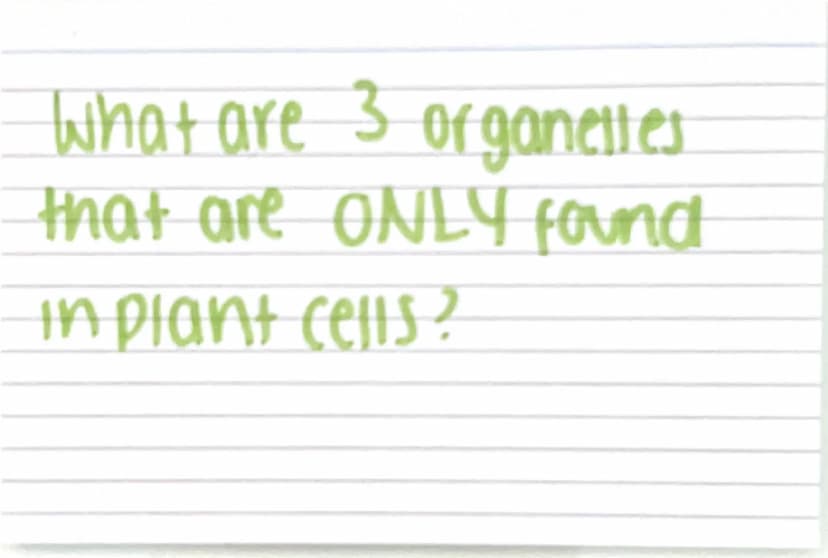 What are 3 organelles
that are ONLY found
in plant cells?